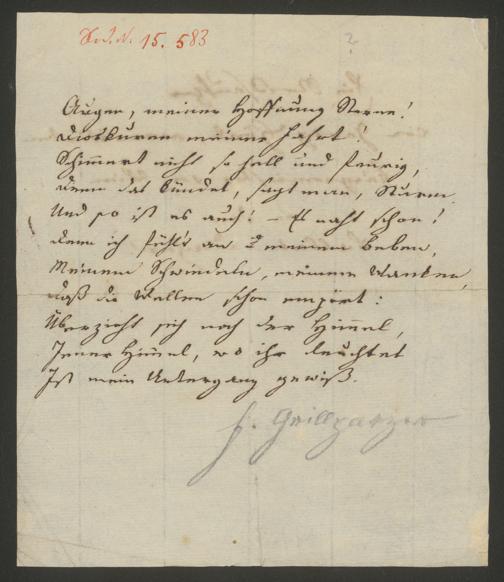 J. N. 15.583
?
Augen, meiner Hoffnung Sterne!
Dioskuren meiner Fahrt!
Schimmert nicht so hell und feurig,
Denn das kündet, sagt man, Sturm.
Und so ist es auch! – Er naht schon!
Denn ich fühl's an meinem Beben,
Meinem Schwindeln, meinem Wanken,
Daß die Wellen schon empört:
Überzieht sich noch der Himmel,
Jener Himmel, wo ihr leuchtet
Ist mein Untergang gewiß.
F. Grillparzer